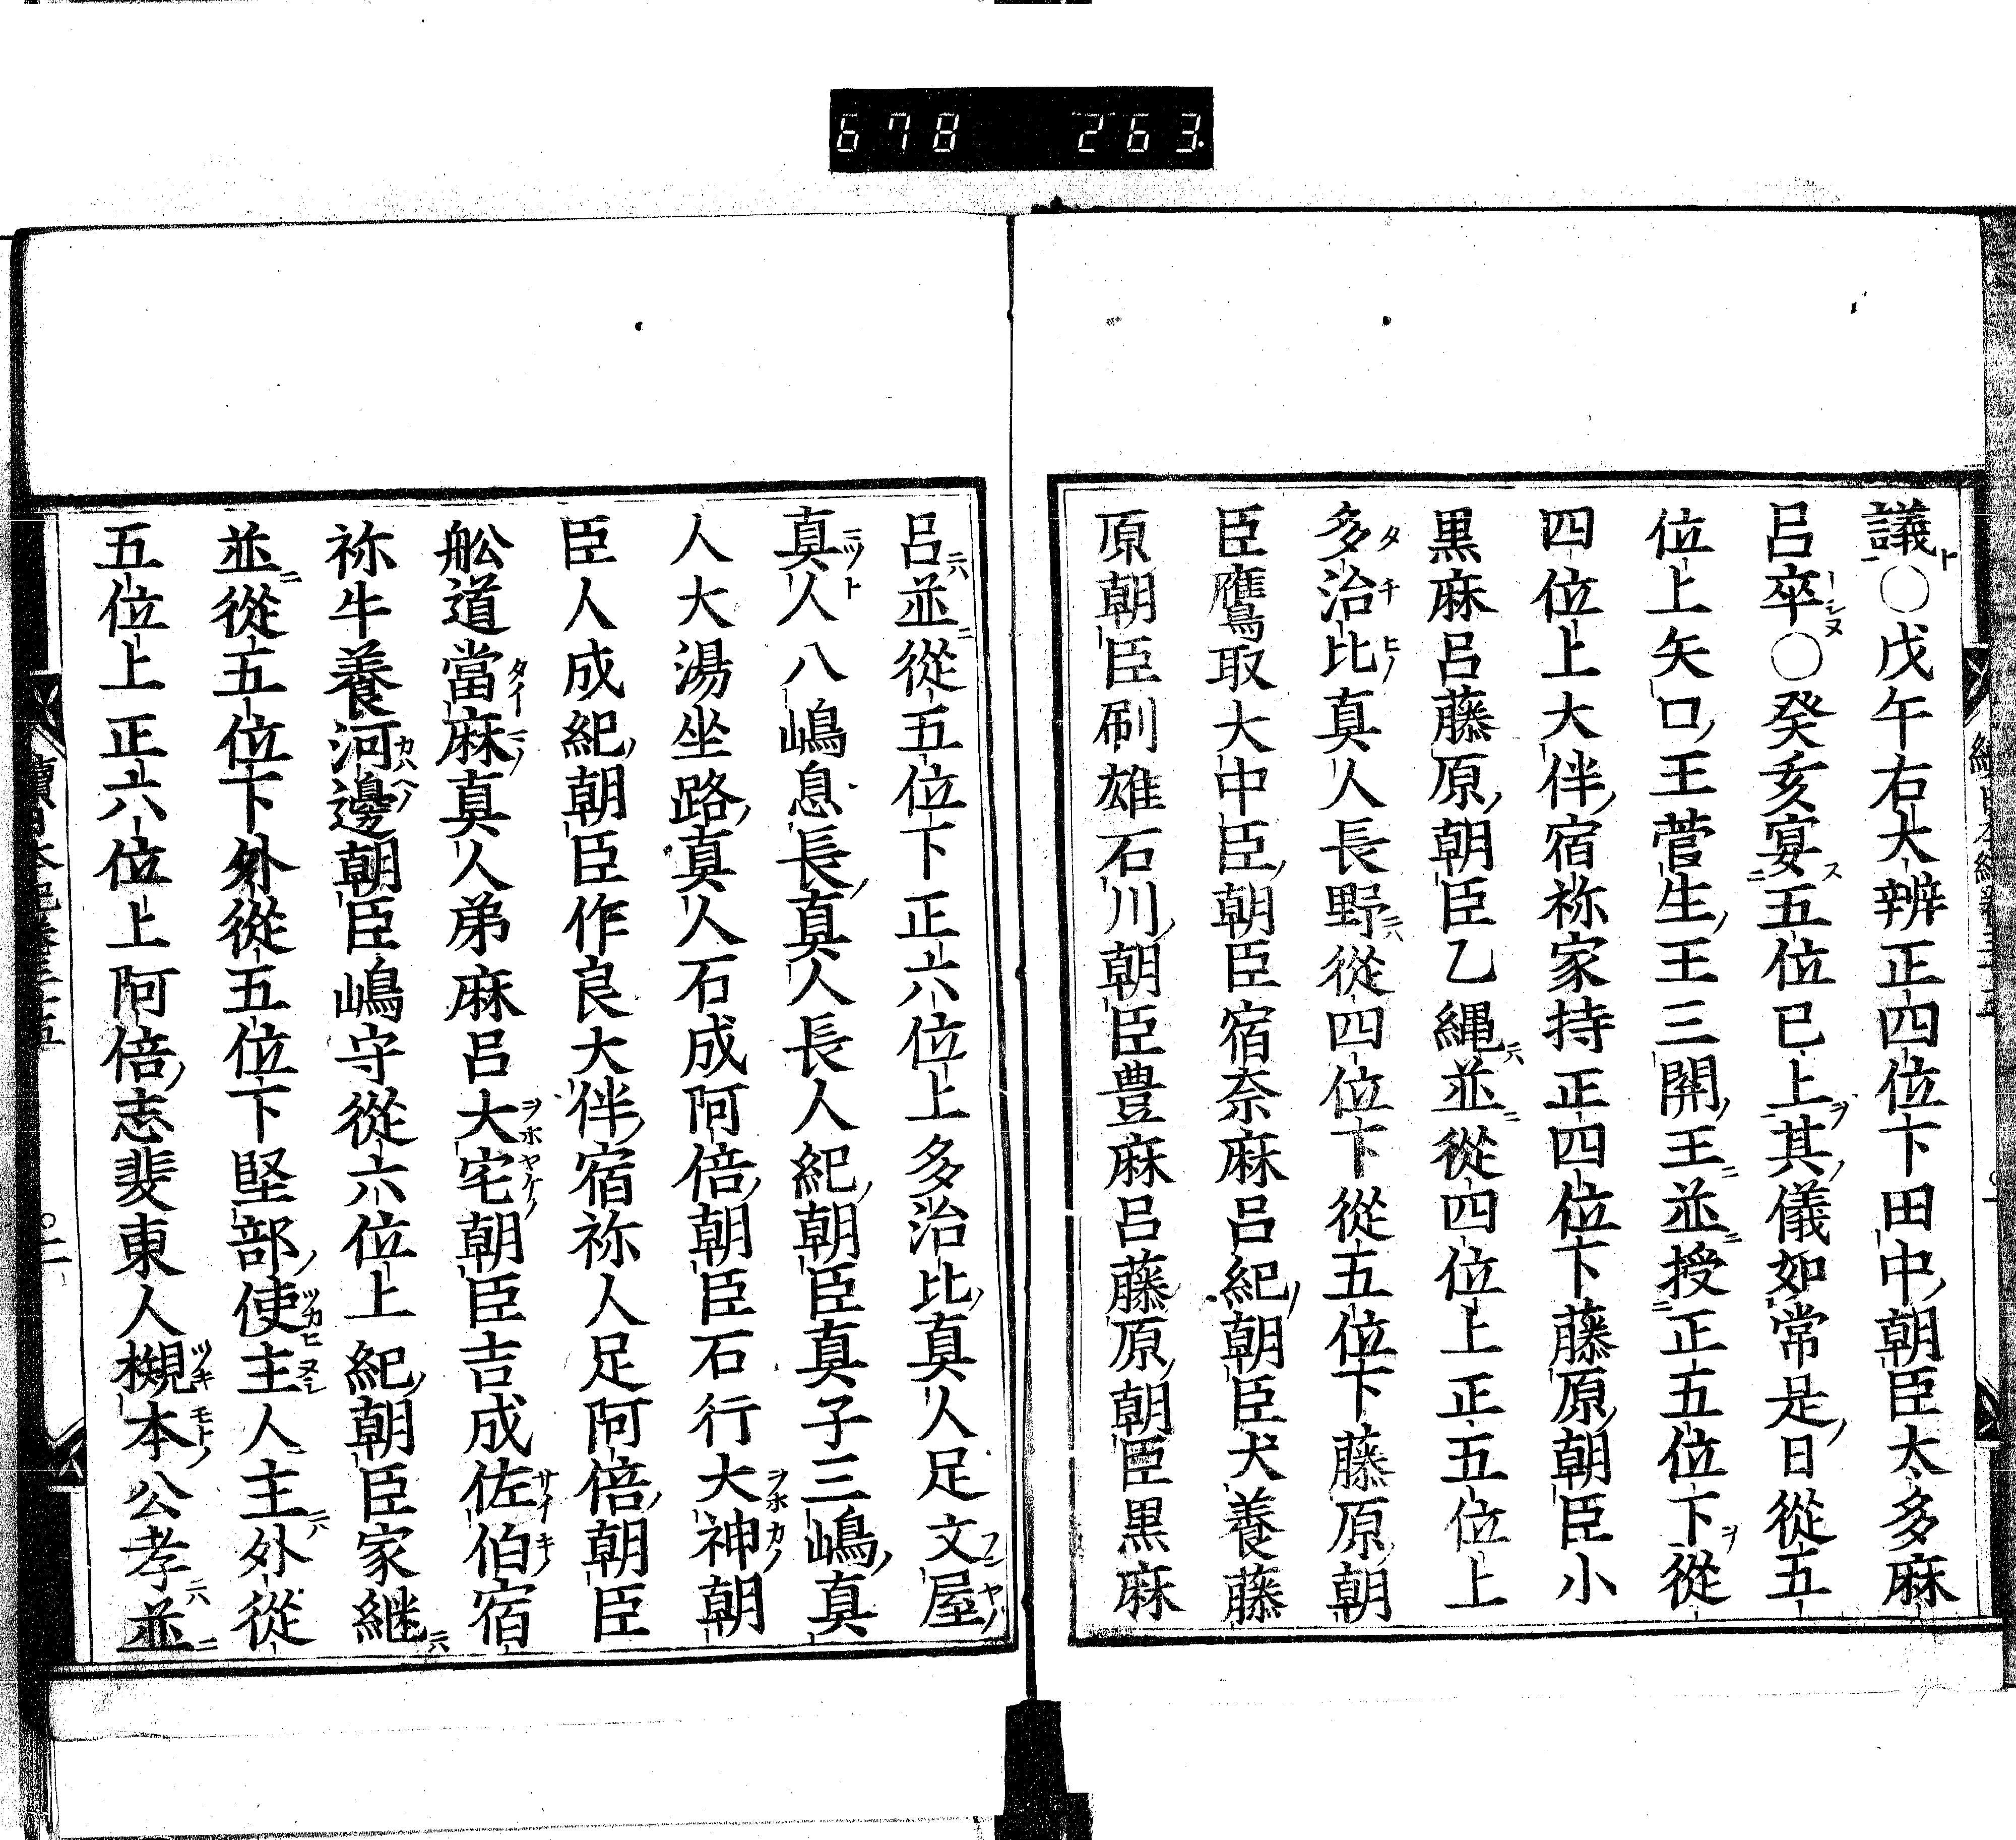 678 263
議○戊午右大辨正四位下田中朝臣太多麻
呂卒○癸亥宴五位已上其儀如常是日從五
位上矢口王菅生王三開王並授正五位下從
四位上大伴宿祢家持正四位下藤原朝臣小
黒麻呂藤原朝臣乙縄並從四位上正五位上
多治比真人長野從四位下從五位下藤原朝
臣鷹取大中臣朝臣宿奈麻呂紀朝臣犬養藤
原朝臣刷雄石川朝臣豊麻呂藤原朝臣黒麻
呂並從五位下正六位上多治比真人足文屋
真人八嶋息長真人長人紀朝臣真子三嶋真
人大湯坐路真人石成阿倍朝臣石行大神朝
臣人成紀朝臣作良大伴宿祢人足阿倍朝臣
舩道當麻真人弟麻呂大宅朝臣吉成佐伯宿
祢牛養河邊朝臣嶋守從六位上紀朝臣家継
並從五位下外從五位下堅部使主人主外從
五位上正六位上阿倍志斐東人槻本公孝並